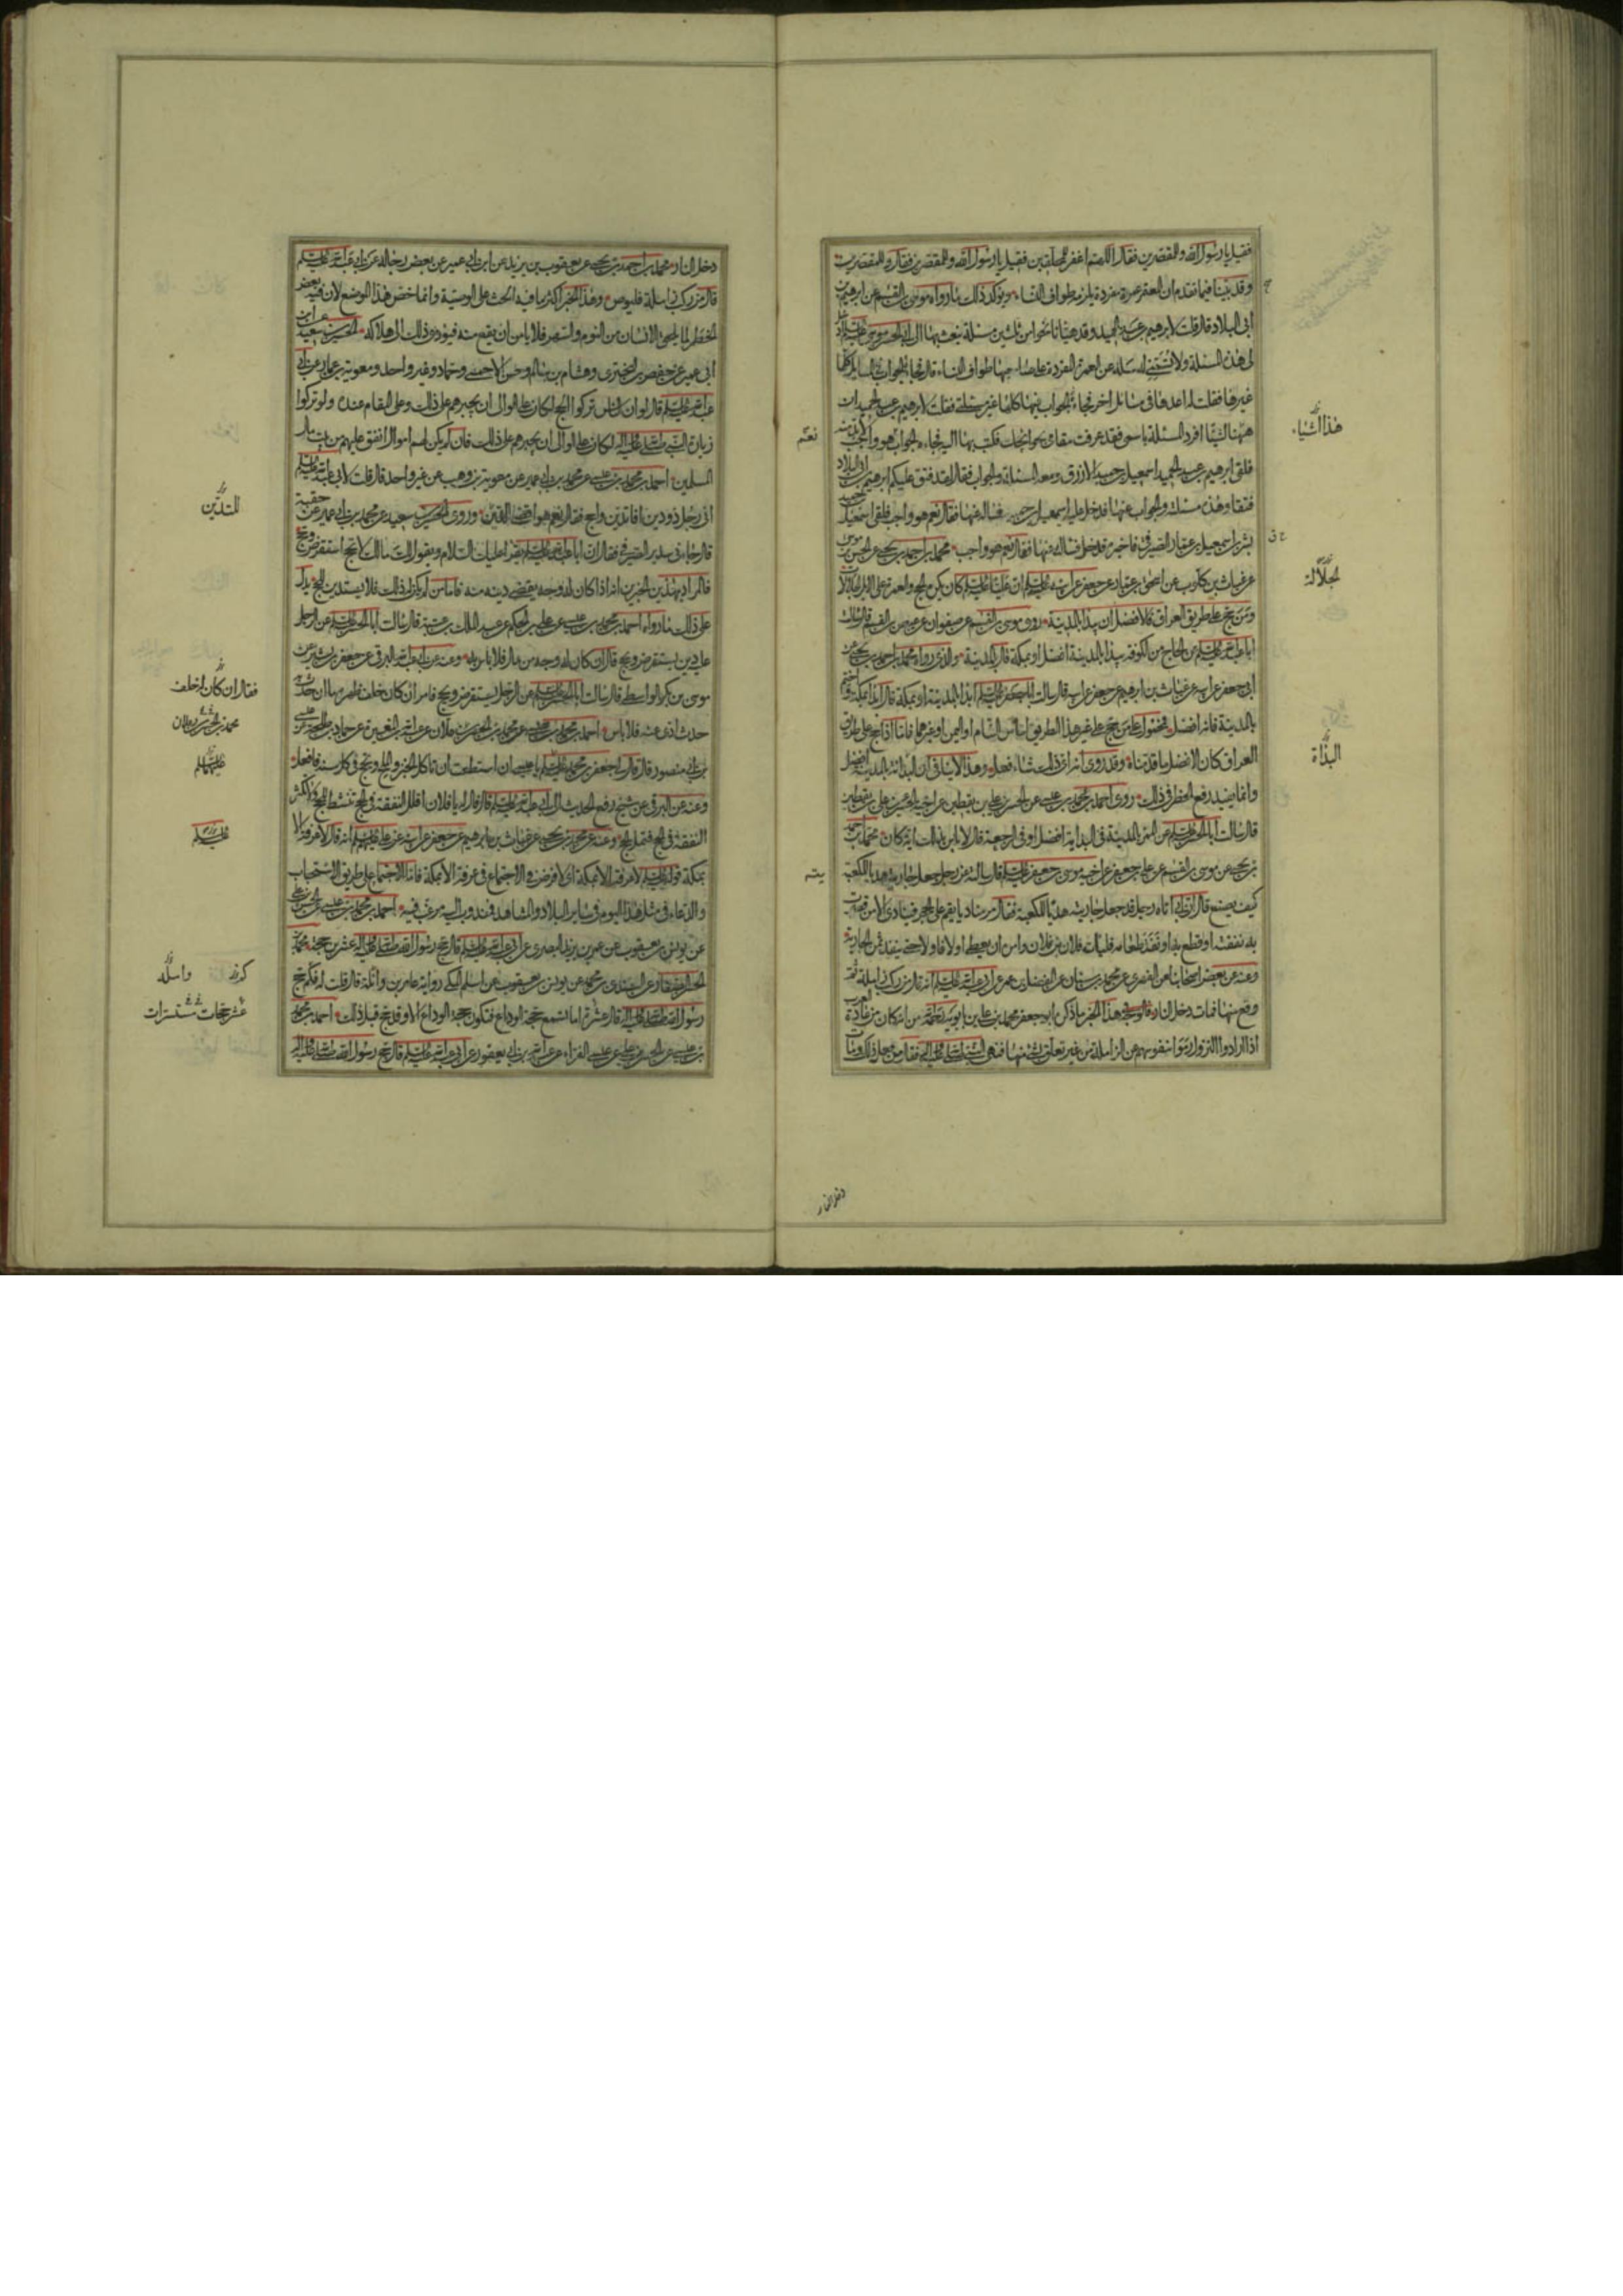 فقيل يا رسول الله وللمقصرين فقال اللهم اغفر للمحلقين فقيل يا رسول الله وللمقصرين فقال وللمقصرين
وقد بينا فيما تقدم ان المعتمر عمرة مفردة يلزمه طواف النساء ويؤكد ذلك ما رواه موسى بن القسم عن ابرهيم بن
ابي البلاد قال قلت لابرهيم بن عبد الحميد وقد هيئنا نحوا من ثلثين مسئلة نبعث بها الى ابي الحسن موسى
لي هذه المسئلة ولا تسمني له سله عن العمرة المفردة على صاحبها طواف النساء قال فجاء الجواب في المسائل كلها
غيرها فقلت له اعدها في مسائل اخر فجاء الجواب فيها كلها غير مسئلتي فقلت لابرهيم بن عبد الحميد ان
ههنا لشيئا افرد المسئلة باسمي فقد عرفت مقامي بحوائجك فكتب بها اليه فجاء الجواب نعم هو واجب لا بد منه
فلقي ابرهيم بن عبد الحميد اسمعيل بن حميد الازرق ومعه المسئلة والجواب فقال لقد فتق عليكم ابرهيم بن ابي البلاد
فتقا وهذه مسئلته والجواب عنها فدخل عليه اسمعيل بن حميد فساله عنها فقال نعم هو واجب فلقي اسمعيل
بشر بن اسمعيل بن عمار الصيرفي فاخبره فدخل فساله عنها فقال نعم هو واجب محمد بن احمد بن يحيى عن الحسن بن موسى
عن غياث بن كلوب عن اسحق بن عمار عن جعفر عن ابيه ان عليا كان يكره الحج والعمرة على الابل الجلالات
ومن حج على طريق العراق فالافضل ان يبدا بالمدينة روى موسى بن القسم عن صفوان عن عيص بن القسم قال سالت
ابا عبد الله عن الحاج من الكوفة يبدا بالمدينة افضل او بمكة قال بالمدينة والذي رواه محمد بن احمد بن يحيى عن
ابي جعفر عن ابيه عن غياث بن ابرهيم عن جعفر عن ابيه قال سالت ابا جعفر ابدا بالمدينة او بمكة قال ابدا بمكة واختم
بالمدينة فانه افضل فمحمول على من حج على غير هذا الطريق من الشام او اليمن او غيرهما فاما اذا حج على طريق
العراق كان الافضل ما قدمناه وقد روى انه اي ذلك شاء فعل وهذا لا ينافي ان البداة بالمدينة افضل
وانما يفيد رفع الحظر في ذلك روى احمد بن محمد بن عيسى عن الحسن بن علي بن يقطين عن اخيه الحسين عن علي بن يقطين
قال سالت ابا الحسن عن الممر بالمدينة في البداية افضل او في الرجعة قال لا باس بذلك اية كان محمد بن احمد
بن يحيى عن موسى بن القسم عن علي بن جعفر عن اخيه موسى بن جعفر قال سالته عن رجل جعل جاريته هديا للكعبة
كيف يصنع قال ان ابي اتاه رجل قد جعل جاريته هديا للكعبة فقال مر مناديا يقم على الحجر فينادي الا من قصرت
به نفقته او قطع به او نفد طعامه فليات فلان بن فلان وامره ان يعطي اولا فاولا حتى ينفد ثمن الجارية
وعنه عن بعض اصحابنا عن محمد بن سنان عن المفضل بن عمر عن ابي عبد الله انه قال من ركب زاملة ثم
وقع منها فمات دخل النار قال الوجه في هذا الخبر ما ذكره ابو جعفر محمد بن علي بن بابويه من انه كان من عادة العرب
اذا ارادوا النزول رموا بنفوسهم عن الزاملة من غير تعلق بشئ منها فنهى النبي فقال من فعل ذلك ومات
نعم
هذا اشياء
الجلالة
البداة
دخل النار
دخل النار محمد بن احمد بن يحيى عن يعقوب بن يزيد عن ابن ابي عمير عن بعض رجاله عن ابي عبد الله
قال من ركب زاملة فليوص وهذا الخبر اكثر ما فيه الحث على الوصية وانما خص هذا الموضع لان فيه بعض
الخطر لما يلحق الانسان من النوم والسهر فلا يامن ان يقع منه فيؤدي ذلك الى هلاكه الحسين بن سعيد عن ابن
ابي عمير عن حفص بن البختري وهشام بن سالم وحسن الاحمسي وحماد وغير واحد ومعوية بن عمار عن ابي
عبد الله قال لو ان الناس تركوا الحج لكان على الوالي ان يجبرهم على ذلك وعلى المقام عنده ولو تركوا
زيارة النبي لكان على الوالي ان يجبرهم على ذلك فان لم يكن لهم اموال انفق عليهم من بيت مال
المسلمين احمد بن محمد بن عيسى عن محمد بن ابي عمير عن معوية بن وهب عن غير واحد قال قلت لابي عبد الله
اني رجل ذو دين افاتدين واحج فقال نعم هو اقضى للدين وروى الحسين بن سعيد عن محمد بن ابي عمير عن حقبة
قال جاءني سدير الصيرفي فقال ان ابا عبد الله يقرأ عليك السلام ويقول لك مالك لا تحج استقرض وحج
فالمراد بهذين الخبرين انه اذا كان له وجه يقضي دينه منه فاما من لم يكن له ذلك فلا يستدين للحج يدل
على ذلك ما رواه احمد بن محمد بن عيسى عن علي بن الحكم عن عبد الملك بن عتبة قال سالت ابا الحسن عن الرجل
عليه دين يستقرض ويحج قال ان كان له وجه من مال فلا باس به وعنه عن ابي عبد الله البرقي عن جعفر بن بشير عن
موسى بن بكر الواسطي قال سالت ابا الحسن عن الرجل يستقرض ويحج فامر ان كان خلف ظهره ما ان حدث به
حدث ادي عنه فلا باس
وعنه عن البرقي عن شيخ رفع الحديث الى ابي عبد الله قال قال له يا فلان اقلل النفقة في الحج تنشط للحج ولا تكثر
النفقة في الحج فتمل الحج وعنه عن محمد بن يحيى عن غياث بن ابرهيم عن جعفر عن ابيه عن علي انه قال لا عرفة الا
بمكة قوله لا عرفة الا بمكة اي لا فرض في الاجتماع في عرفة الا بمكة فاما الاجتماع على طريق الاستحباب
والدعاء في مثل هذا اليوم في سائر البلاد والمشاهد فمندوب اليه مرغب فيه احمد بن محمد بن عيسى عن الحسن بن علي
عن يونس بن يعقوب عن عمر بن يزيد البصري عن ابي عبد الله قال حج رسول الله عشرين حجة محمد بن
رسول الله قال عشرة اما تسمع حجة الوداع فتكون حجة الوداع الا وقد حج قبل ذلك احمد بن محمد
بن عيسى عن الحسن بن علي عن عيسى الفراء عن عبد الله بن ابي يعفور عن ابي عبد الله قال حج رسول الله
للتدين
فقال ان كان له خلف
عشر حجات مستسرات